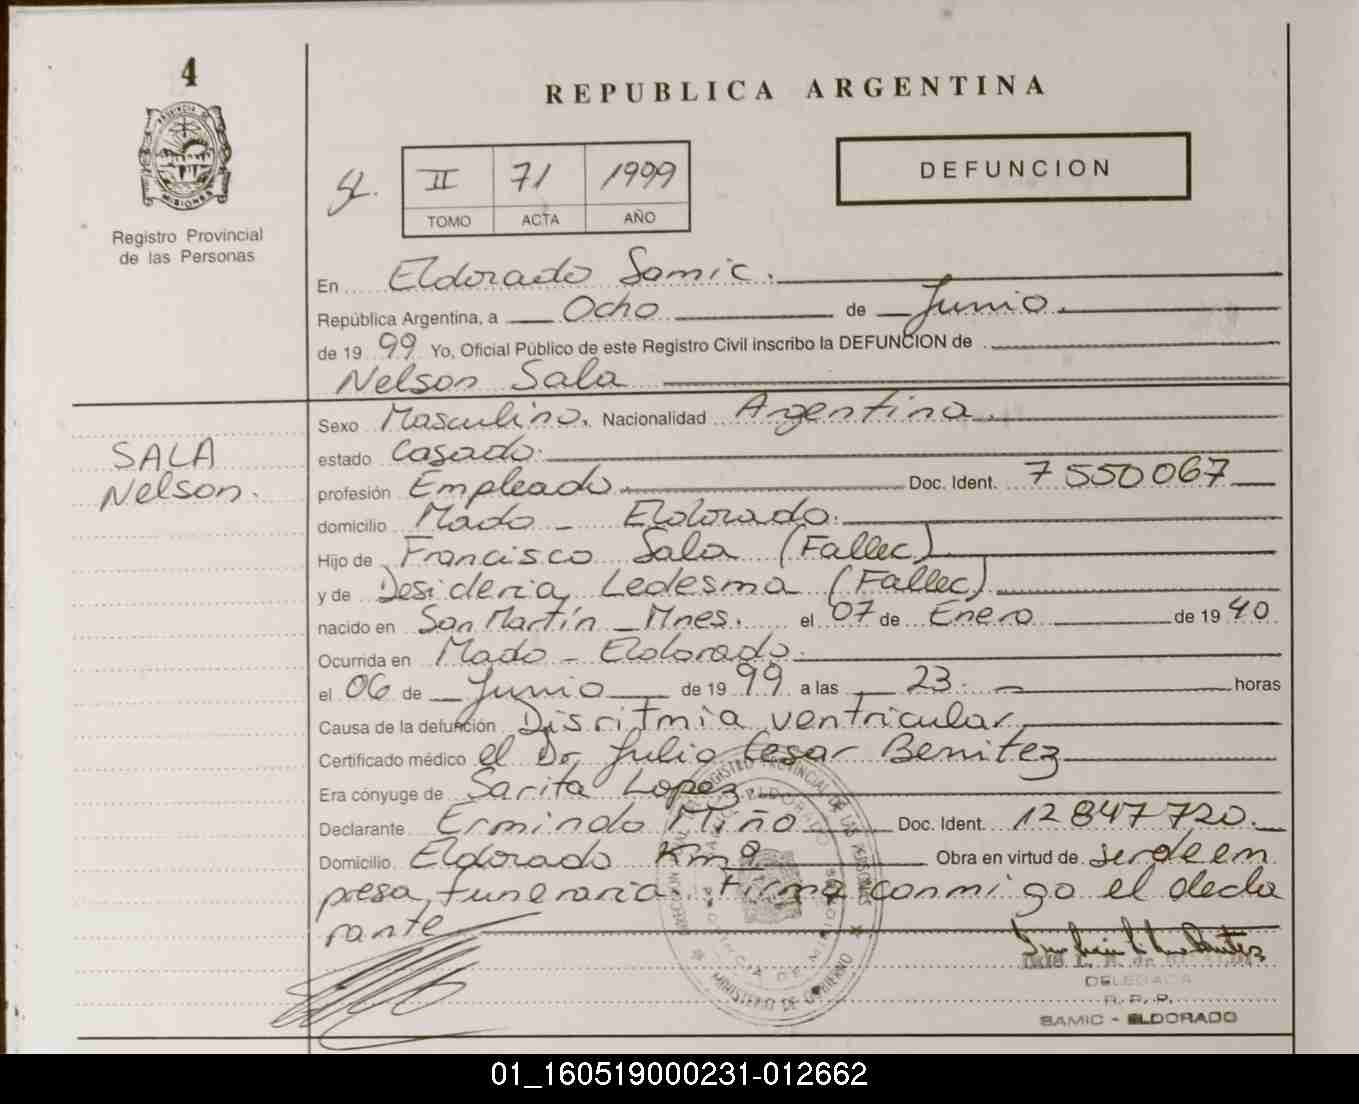 4
REPUBLICA ARGENTINA
PROVINCIA DE
MISIONES
Registro Provincial
de las Personas
II 71 1999
TOMO ACTA AÑO
DEFUNCION
En Eldorado Samic.
República Argentina, a Ocho de Junio
de 19 99 Yo, Oficial Público de este Registro Civil inscribo la DEFUNCION de
Nelson Sala
SALA
Nelson.
Sexo Masculino. Nacionalidad Argentina.
estado Casado.
profesión Empleado Doc. Ident. 7550067
domicilio Mado - Eldorado.
Hijo de Francisco Sala (Fallec)
y de Desideria Ledesma (Fallec)
nacido en San Martín - Mnes. el 07 de Enero de 19 40
Ocurrida en Mado - Eldorado.
el 06 de Junio de 19 99 a las 23. horas
Causa de la defunción Disritmia ventricular
Certificado médico el Dr. Julio Cesar Benitez
Era cónyuge de Sarita Lopez
Declarante Ermindo Miño Doc. Ident. 12847720.
Domicilio Eldorado Km 9 Obra en virtud de ser de em
presa funeraria. Firma conmigo el decla
rante
REGISTRO PROVINCIAL DE LAS PERSONAS
MINISTERIO DE GOBIERNO
ELDORADO
DELEGADA
R. P. P.
SAMIC - ELDORADO
01_160519000231-012662